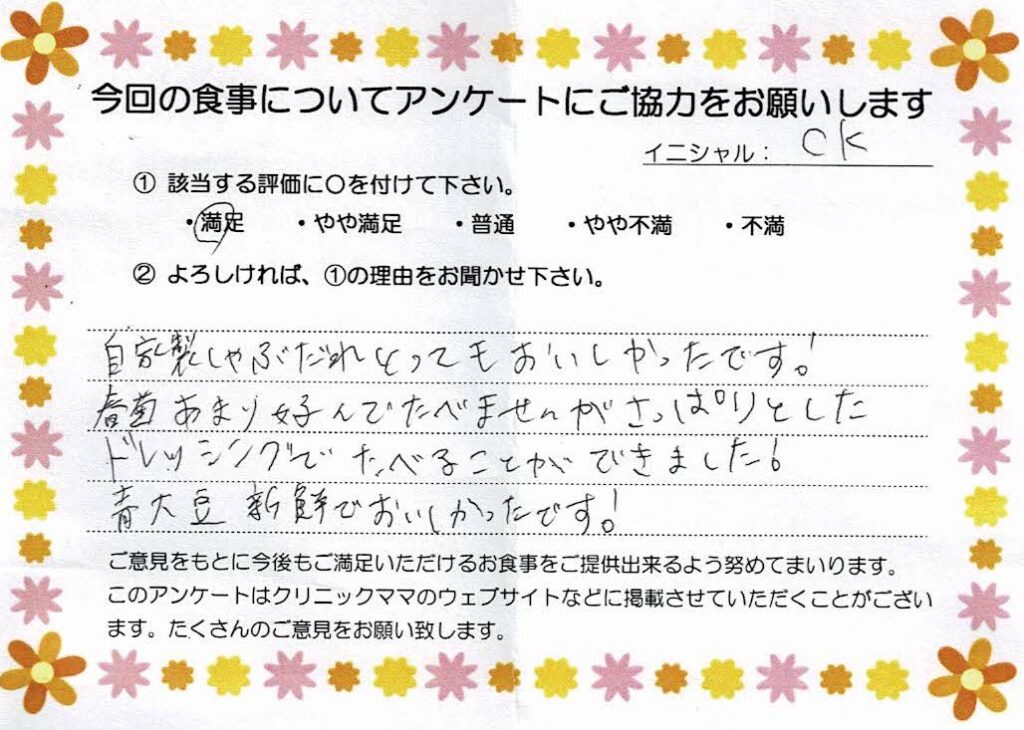 今回の食事についてアンケートにご協力をお願いします
イニシャル： CK
① 該当する評価に〇を付けて下さい。
・満足 ・やや満足 ・普通 ・やや不満 ・不満
② よろしければ、①の理由をお聞かせ下さい。
自家製しゃぶだれとってもおいしかったです!
春菊あまり好んでたべませんがさっぱりとした
ドレッシングでたべることができました!
青大豆 新鮮でおいしかったです!
ご意見をもとに今後もご満足いただけるお食事をご提供出来るよう努めてまいります。
このアンケートはクリニックママのウェブサイトなどに掲載させていただくことがござい
ます。たくさんのご意見をお願い致します。